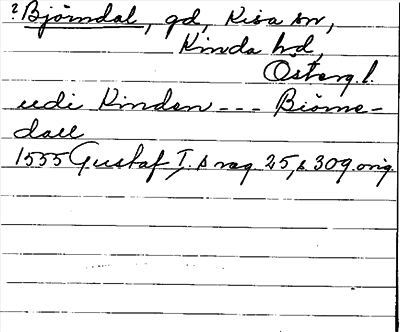 ? Björndal, gd, Kisa sn,
Kinda hd,
Österg.l.
udi Kinden --- Biörne-
dall
1555 Gustaf I:s reg. 25, s 309 orig.